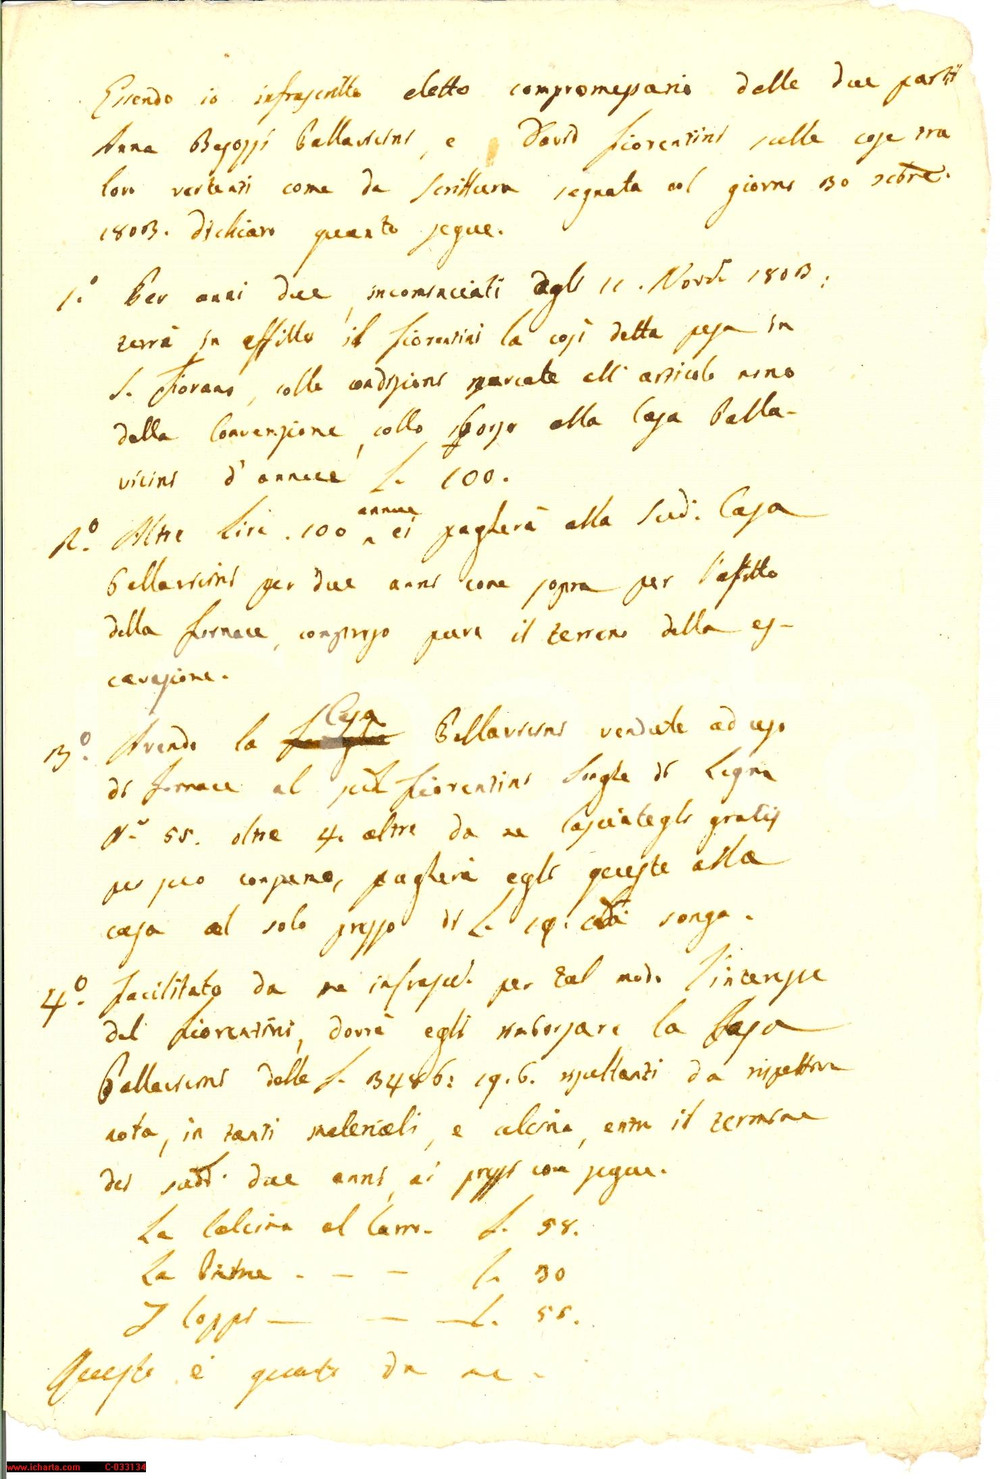 Essendo io infrascritto eletto compromissario dalle due parti
Anna Begozzi Pallavicini, e David Fiorentini sulle cose tra
loro vertenti come da scrittura segnata col giorno 30 xcbre.
1803. dichiaro quanto segue.
1.° Per anni due, incominciati dagli 11. Novbr. 1803;
terrà in affitto il Fiorentini la così detta pesa in
S. Fiorano, colle condizioni marcate all' articolo nono
della Convenzione, collo sborso alla Casa Palla-
vicini d' annue L. 100.
2.° Altre Lire. 100 annue ei pagherà alla Sud. Casa
Pallavicini per due anni come sopra per l'affitto
della fornace, compreso pure il terreno della es-
cavazione.
3.° Avendo la Casa Pallavicini vendute ad uso
di fornace al sud. Fiorentini Songe di Legna
N.° 55. oltre 4. altre da me lasciategli gratis
per suo compenso, pagherà egli queste alla
casa al solo prezzo di L. 19. cad. songa.
4.° Facilitato da me infrascr. per tal modo l'interesse
del Fiorentini, dovrà egli rimborsare la Casa
Pallavicini delle L. 3486: 19. 6. risultanti da rispettiva
nota, in tanti materiali, e calcina, entro il termine
dei sudd. due anni, ai prezzi come segue.
La Calcina al Carro. L. 58.
La Pietre . — — L. 30
I Coppi — — L. 55.
Questo è quanto da me.
www.icharta.com C-033134